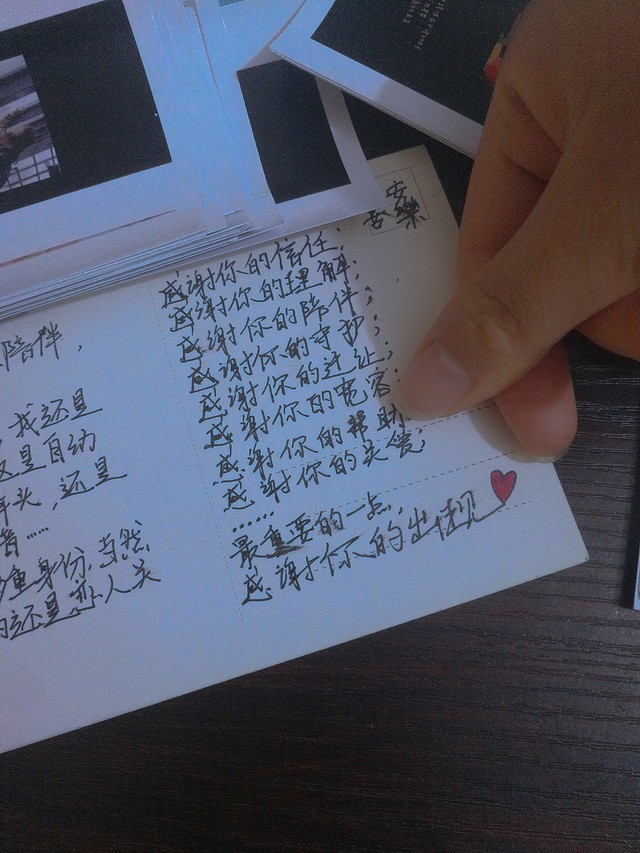 陪伴，
我还是
这是自动
还是
……
重身份，当然
还是恋人关
安
苦樂
感谢你的信任；
感谢你的理解；
感谢你的陪伴；
感谢你的守护；
感谢你的迁让；
感谢你的宽容；
感谢你的帮助；
感谢你的关爱；
……
最重要的一点，
感谢你的出现